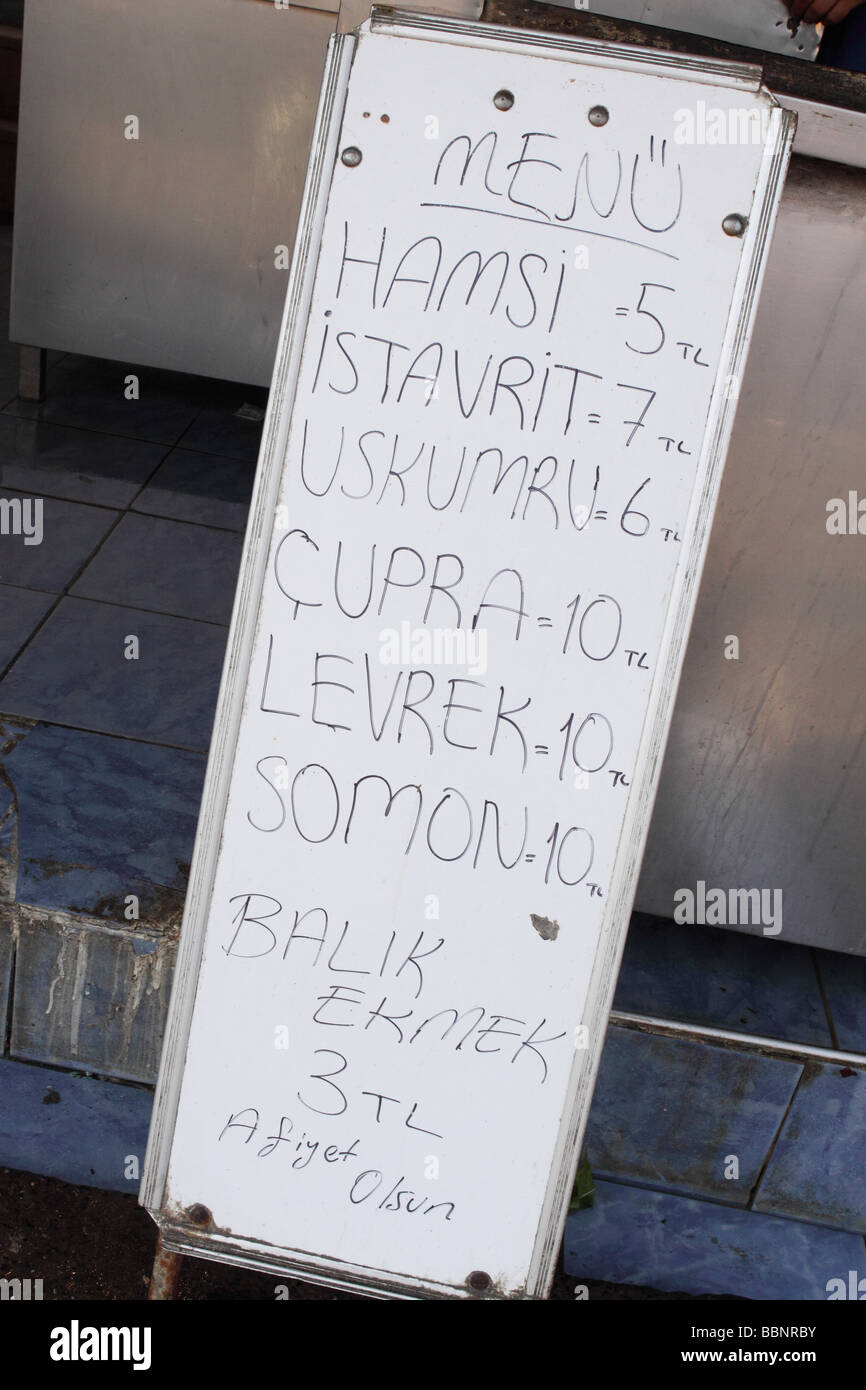 MENÜ
HAMSİ = 5 TL
İSTAVRİT = 7 TL
USKUMRU = 6 TL
ÇUPRA = 10 TL
LEVREK = 10 TL
SOMON = 10 TL
BALIK
EKMEK
3 TL
Afiyet
Olsun
a
alamy
alamy
Image ID: BBNRBY
www.alamy.com